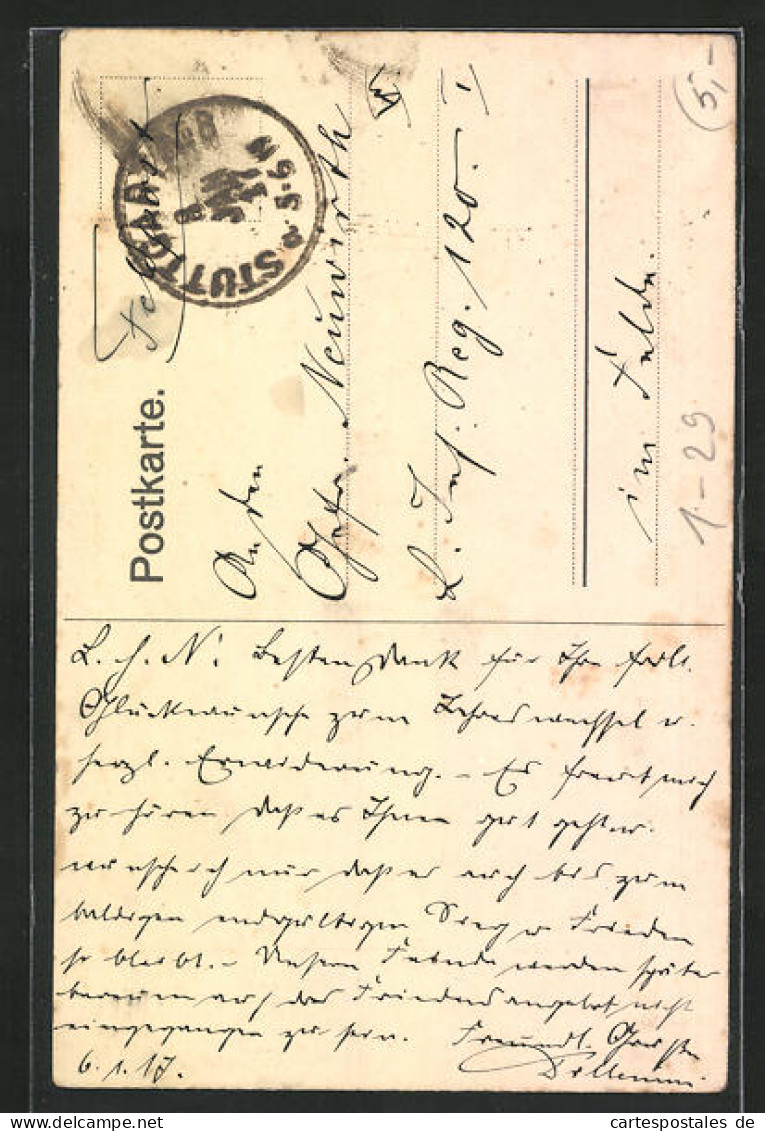 Postkarte.
Feldpost
STUTTGART
8 JAN 17
N 5-6
An den
Neuwirth
R. Inf. Reg. 120. I
im Felde.
(5,-
1-29
L. H. N! Besten Dank für Ihre frdl.
Glückwünsche zum Jahreswechsel u.
herzl. Erwiderung. - Es freut mich
zu hören daß es Ihnen gut geht u.
wünsche ich nur daß es auch bis zum
baldigen endgültigen Sieg u Frieden
so bleibt. - Unsere Feinde werden später
bereuen auf das Friedensangebot nicht
eingegangen zu sein. Freundl. Grüße
6.1.17.
cartespostales de